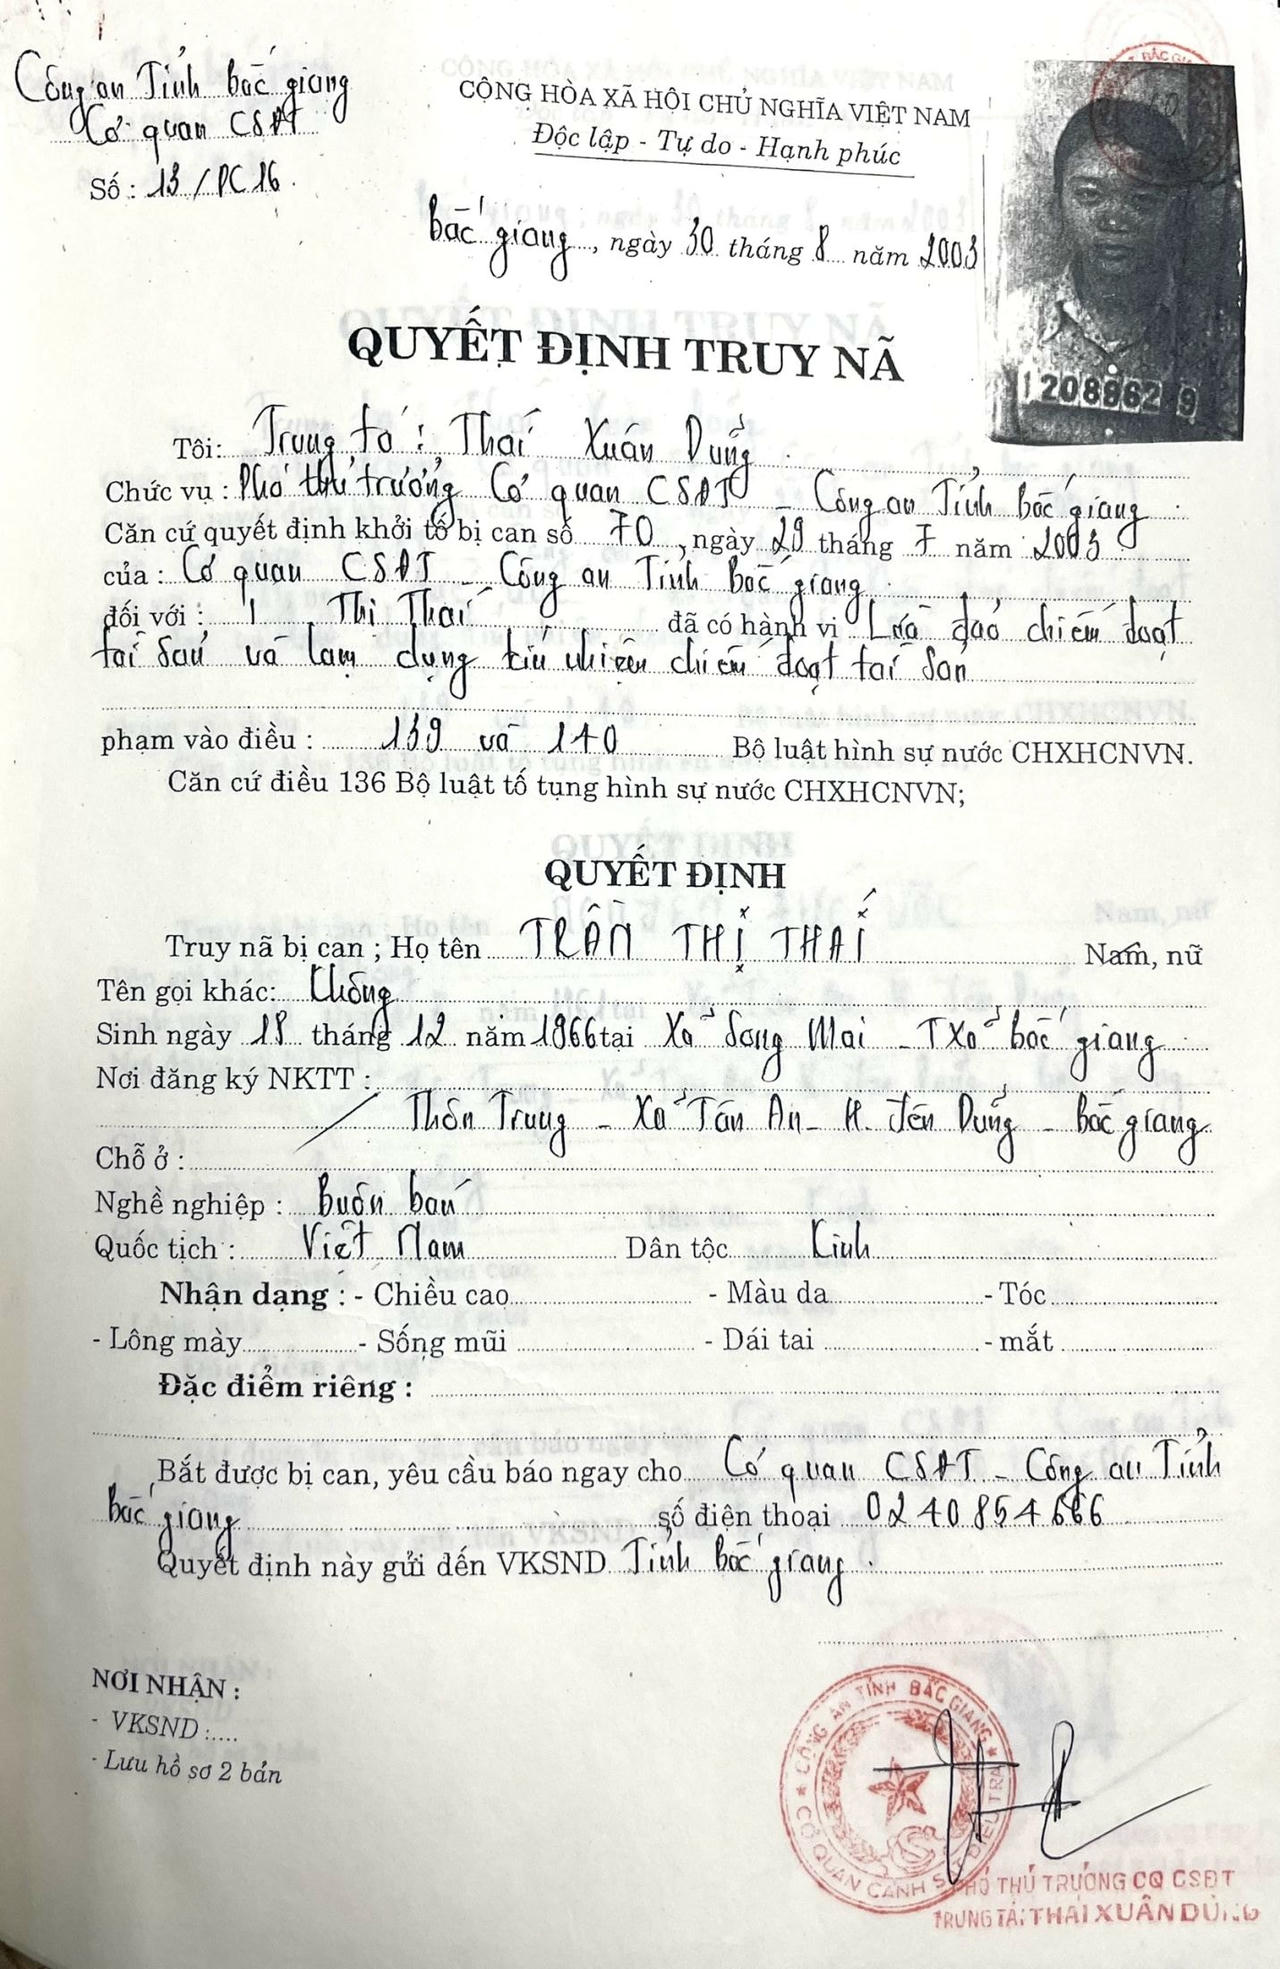 Công an Tỉnh Bắc giang
Cơ quan CSĐT
Số : 13 / PC16
CỘNG HÒA XÃ HỘI CHỦ NGHĨA VIỆT NAM
Độc lập - Tự do - Hạnh phúc
Bắc giang, ngày 30 tháng 8 năm 2003
1208962 9
QUYẾT ĐỊNH TRUY NÃ
Tôi: Trung tá : Thái Xuân Dũng
Chức vụ : Phó thủ trưởng Cơ quan CSĐT - Công an Tỉnh Bắc giang
Căn cứ quyết định khởi tố bị can số 70, ngày 29 tháng 7 năm 2003
của : Cơ quan CSĐT - Công an Tỉnh Bắc giang
đối với : Thị Thái đã có hành vi Lừa đảo chiếm đoạt
tài sản và lạm dụng tín nhiệm chiếm đoạt tài sản
phạm vào điều : 139 và 140 Bộ luật hình sự nước CHXHCNVN.
Căn cứ điều 136 Bộ luật tố tụng hình sự nước CHXHCNVN;
QUYẾT ĐỊNH
Truy nã bị can ; Họ tên TRẦN THỊ THÁI Nam, nữ
Tên gọi khác: Không
Sinh ngày 18 tháng 12 năm 1966 tại Xã Song Mai - TXã Bắc giang
Nơi đăng ký NKTT :
Thôn Trung - Xã Tân An - H. Yên Dũng - Bắc giang
Chỗ ở :
Nghề nghiệp : Buôn bán
Quốc tịch : Việt Nam Dân tộc Kinh
Nhận dạng : - Chiều cao - Màu da - Tóc
- Lông mày - Sống mũi - Dái tai - mắt
Đặc điểm riêng :
Bắt được bị can, yêu cầu báo ngay cho Cơ quan CSĐT - Công an Tỉnh
Bắc giang số điện thoại 0240854666
Quyết định này gửi đến VKSND Tỉnh Bắc giang
NƠI NHẬN :
- VKSND :....
- Lưu hồ sơ 2 bản
CÔNG AN TỈNH BẮC GIANG
CƠ QUAN CẢNH SÁT ĐIỀU TRA
PHÓ THỦ TRƯỞNG CQ CSĐT
TRUNG TÁ: THÁI XUÂN DŨNG